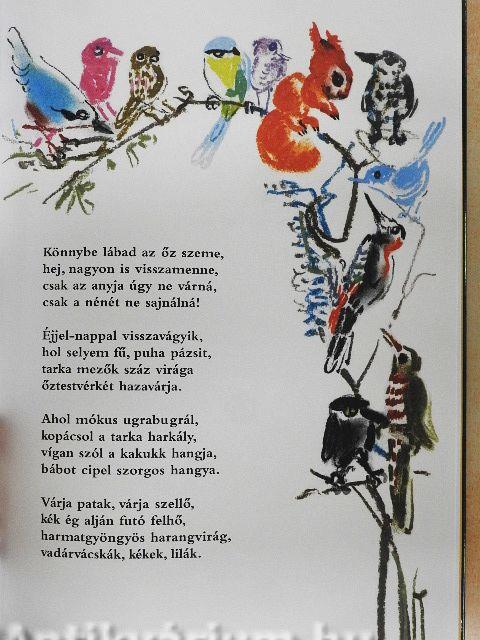 Könnybe lábad az őz szeme,
hej, nagyon is visszamenne,
csak az anyja úgy ne várná,
csak a nénét ne sajnálná!
Éjjel-nappal visszavágyik,
hol selyem fű, puha pázsit,
tarka mezők száz virága
őztestvérkét hazavárja.
Ahol mókus ugrabugrál,
kopácsol a tarka harkály,
vígan szól a kakukk hangja,
bábot cipel szorgos hangya.
Várja patak, várja szellő,
kék ég alján futó felhő,
harmatgyöngyös harangvirág,
vadárvácskák, kékek, lilák.
Antikvárium.hu